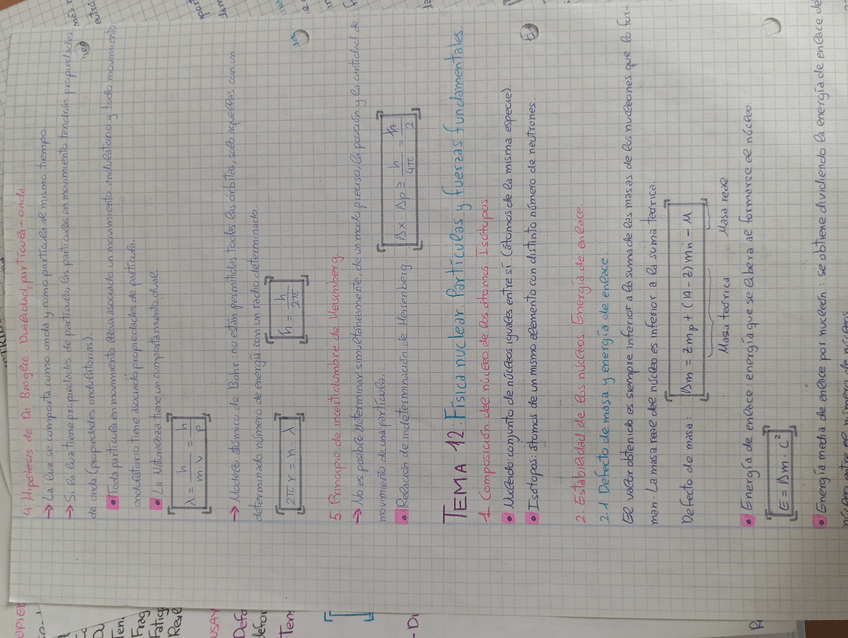 4. Hipótesis de De Broglie. Dualidad partícula-onda.
→ La luz se comporta como onda y como partícula al mismo tiempo.
→ Si la luz tiene propiedades de partícula, las partículas en movimiento tendrán propiedades
de onda (propiedades ondulatorias).
• Toda partícula en movimiento lleva asociado un movimiento ondulatorio y todo movimiento
ondulatorio tiene asociado propiedades de partícula.
• La Naturaleza tiene un comportamiento dual
λ = h / m·v = h / p
→ Modelo atómico de Bohr: no están permitidas todas las órbitas, solo aquellas con un
determinado número de energía con un radio determinado.
2π r = n · λ
ħ = h / 2π
5. Principio de incertidumbre de Heisenberg
→ No es posible determinar simultáneamente, de un modo preciso, la posición y la cantidad de
movimiento de una partícula.
• Relación de indeterminación de Heisenberg
Δx · Δp ≥ h / 4π = ħ / 2
TEMA 12: Física nuclear. Partículas y fuerzas fundamentales.
1. Composición del núcleo de los átomos. Isótopos.
• Nucleido conjunto de núcleos iguales entre sí (átomos de la misma especie)
• Isótopos: átomos de un mismo elemento con distinto número de neutrones.
2. Estabilidad de los núcleos. Energía de enlace
2.1 Defecto de masa y energía de enlace
El valor obtenido es siempre inferior a la suma de las masas de los nucleones que lo for-
man. La masa real del núcleo es inferior a la suma teórica.
Defecto de masa: Δm = Z mp + (A - Z) mn - M
Masa teórica Masa real
• Energía de enlace: energía que se libera al formarse el núcleo.
E = Δm · c²
• Energía media de enlace por nucleón: se obtiene dividiendo la energía de enlace de